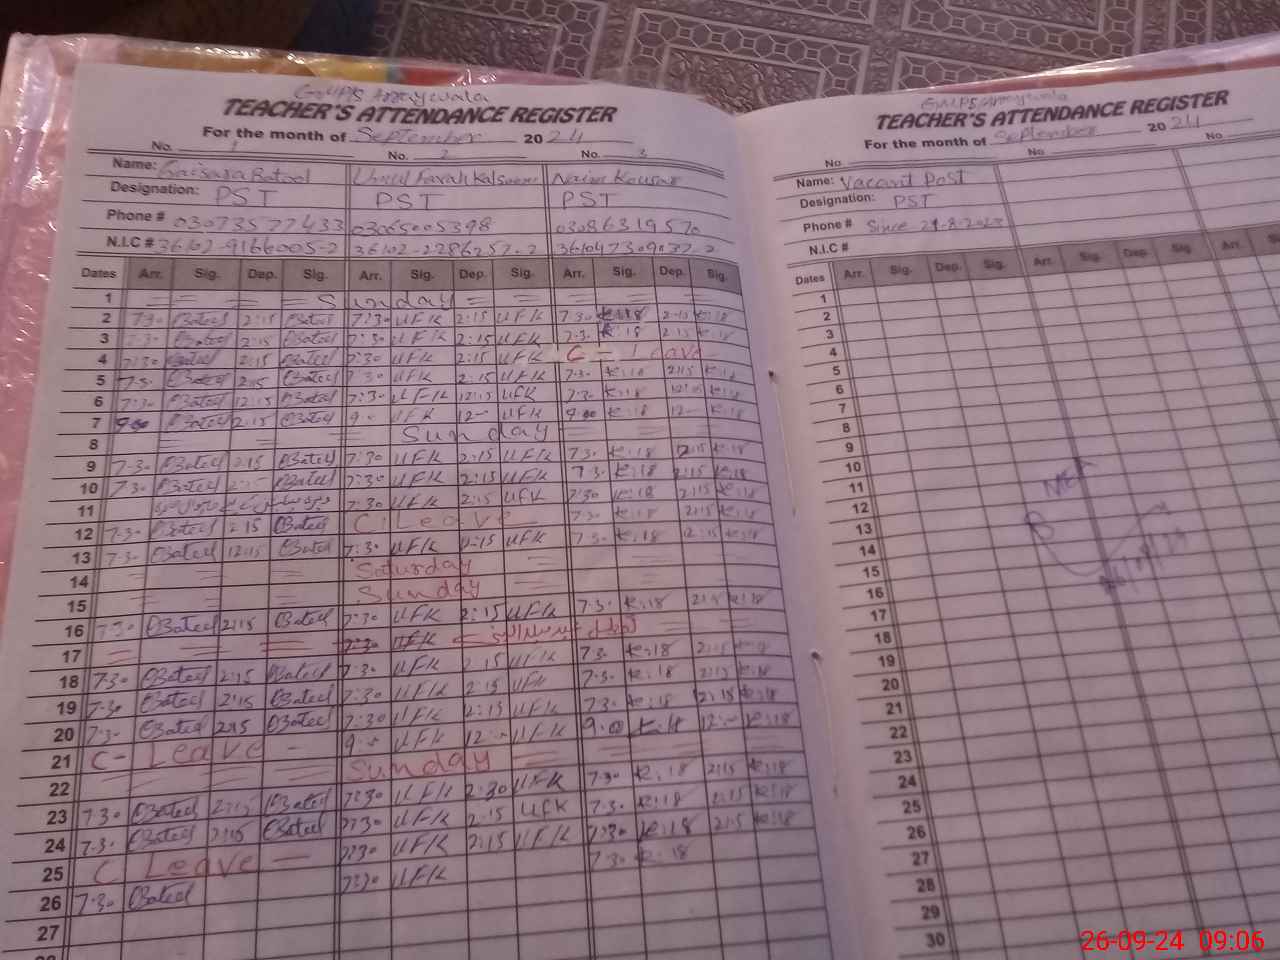 GWPS Arraywala
TEACHER'S ATTENDANCE REGISTER
For the month of September 2024
No. 1 No. 2 No. 3
Name: Batool Umul Farah Kalsoom Naim Kousar
Designation: PST PST PST
Phone # 03073577433 03065005398 03086319570
N.I.C # 36102-9166005-2 36102-2286257-2
Dates Arr. Sig. Dep. Sig. Arr. Sig. Dep. Sig. Arr. Sig. Dep. Sig.
1 Sunday
2 7:30 Batool 2:15 Batool 7:30 UFK 2:15 UFK 7:30 k:18 2:15 k:18
3 7:30 Batool 2:15 Batool 7:30 UFK 2:15 UFK 7:30 k:18 2:15 k:18
4 7:30 Batool 2:15 Batool 7:30 UFK 2:15 UFK C - Leave
5 7:30 Batool 2:15 Batool 7:30 UFK 2:15 UFK 7:30 k:18 2:15 k:18
6 7:30 Batool 12:15 Batool 7:30 UFK 12:15 UFK 7:30 k:18 12:15 k:18
7 9:00 Batool 2:15 Batool 9:00 UFK 12- UFK 9:00 k:18 12- k:18
8 Sunday
9 7:30 Batool 2:15 Batool 7:30 UFK 2:15 UFK 7:30 k:18 2:15 k:18
10 7:30 Batool 2:15 Batool 7:30 UFK 2:15 UFK 7:30 k:18 2:15 k:18
11 7:30 UFK 2:15 UFK 7:30 k:18 2:15 k:18
12 7:30 Batool 2:15 Batool C: Leave 7:30 k:18 2:15 k:18
13 7:30 Batool 12:15 Batool 7:30 UFK 2:15 UFK 7:30 k:18 12:15 k:18
14 Saturday
15 Sunday
16 7:30 Batool 2:15 Batool 7:30 UFK 2:15 UFK 7:30 k:18 2:15 k:18
17 7:30 UFK
18 7:30 Batool 2:15 Batool 7:30 UFK 2:15 UFK 7:30 k:18 2:15 k:18
19 7:30 Batool 2:15 Batool 7:30 UFK 2:15 UFK 7:30 k:18 2:15 k:18
20 7:30 Batool 2:15 Batool 7:30 UFK 2:15 UFK 7:30 k:18 12:15 k:18
21 C- Leave - 9:00 UFK 12:00 UFK 9:0 k:18 12:- k:18
22 Sunday
23 7:30 Batool 2:15 Batool 7:30 UFK 2:30 UFK 7:30 k:18 2:15 k:18
24 7:30 Batool 2:15 Batool 7:30 UFK 2:15 UFK 7:30 k:18 2:15 k:18
25 C Leave - 7:30 UFK 2:15 UFK 7:30 k:18 2:15 k:18
26 7:30 Batool 7:30 UFK 7:30 k:18
27
28
GWPS Arraywala
TEACHER'S ATTENDANCE REGISTER
For the month of September 2024
No. No. No.
Name: Vacant Post
Designation: PST
Phone # Since
N.I.C #
Dates Arr. Sig. Dep. Sig. Arr. Sig. Dep. Sig. Arr.
1
2
3
4
5
6
7
8
9
10
11
12
13
14
15
16
17
18
19
20
21
22
23
24
25
26
27
28
29
30
26-09-24 09:06